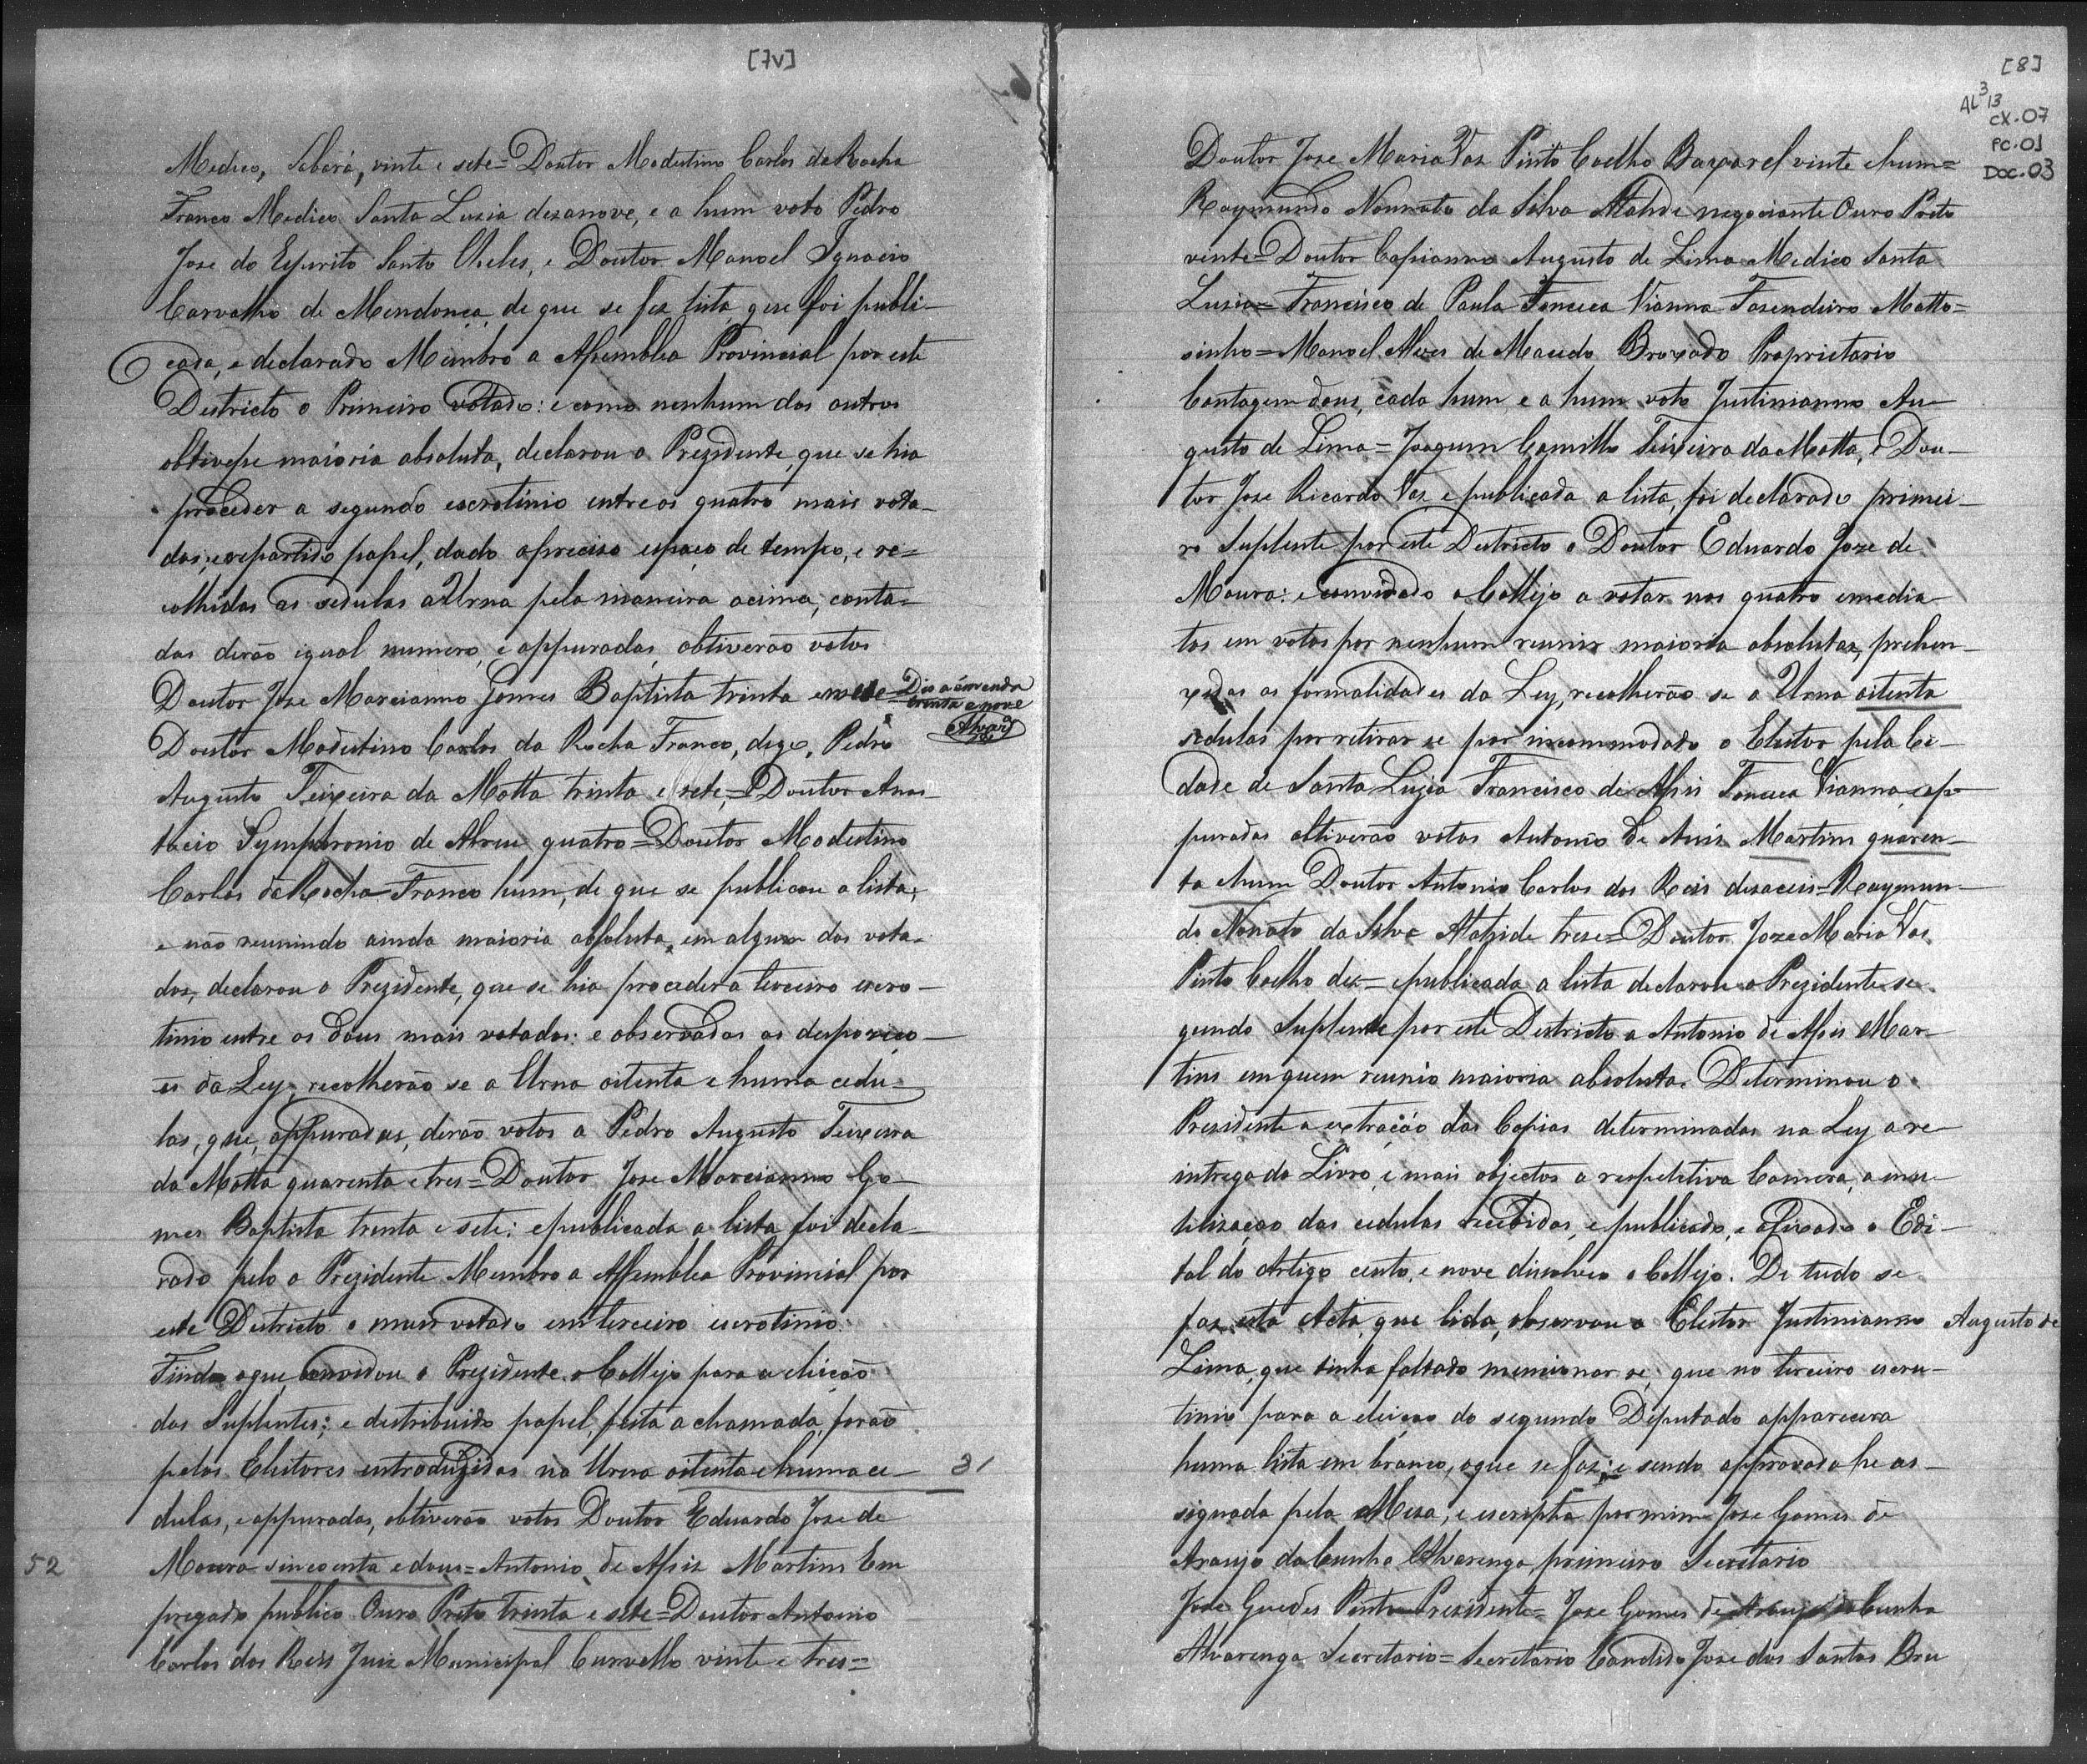 [7v]
Medico, Sabará, vinte e sete = Doutor Modestino Carlos da Rocha
Franco Medico Santa Luzia desanove, e a hum voto Pedro
Jose do Espirito Santo e Doutor Manoel Ignacio
Carvalho de Mendonça, de que se fez lista, que foi publi-
cada, e declarado Membro a Assemblea Provincial por este
Destricto o Primeiro votado: e como nenhum dos outros
obtivesse maioria absoluta, declarou o Prezidente, que se hia
proceder a segundo escrotinio entre os quatro mais vota-
dos; e repartido papel, dado o preciso espaço de tempo, e re=
colhidas as sedulas a Urna pela maneira acima, conta=
das derão igual numero, e appuradas, obtiverão votos
Doutor Jose Marcianno Gomes Baptista trinta e nove = Diz a emenda
trinta e nove
Alvarª
Doutor Modestino Carlos da Rocha Franco, digo, Pedro
Augusto Teixeira da Motta trinta e sete, = Doutor Anas-
tacio Symphronio de Abreu quatro = Doutor Modestino
Carlos da Rocha Franco hum, de que se publicou a lista,
e não reunindo ainda maioria absoluta, em algum dos vota-
dos, declarou o Prezidente, que se hia proceder a terceiro escro-
tinio entre os dous mais votados: e observadas as despoziço-
es da Ley, recolherão se a Urna oitenta e huma cedu-
las, que, appuradas, derão votos a Pedro Augusto Teixeira
da Motta quarenta e tres = Doutor Jose Marcianno Go-
mes Baptista trinta e sete: e publicada a lista foi decla-
rado pelo o Prezidente Membro a Assemblea Provincial por
este Destricto o mais votado em terceiro escrotinio.
Findo o que convidou o Prezidente o Collejo para a eleição
dos Suplentes; e destribuido papel, feita a chamada, forão
pelos Eleitores entroduzidas na Urna oitenta e huma ce- 81
dulas, e appuradas, obtiverão votos Doutor Eduardo Jose de
52 Moura sincoenta e dous = Antonio de Assis Martins Em
pregado publico Ouro Preto trinta e sete = Doutor Antonio
Carlos dos Reis Juiz Municipal Curvello vinte e tres =
[8]
AL³ 13
CX.07
PC.01
DOC.03
Doutor Jose Maria Vaz Pinto Coelho Bacharel vinte e hum =
Raymundo Nonnato da Silva Athaide negociante Ouro Preto
vinte = Doutor Cassianno Augusto de Lima Medico Santa
Luzia = Francisco de Paula Fonceca Vianna Fasendeiro Matto=
sinho = Manoel Alves de Macedo Broxado Proprietario
Contagem dous, cada hum e a hum voto Justinianno Au-
gusto de Lima = Joaquim Camillo Teixeira da Motta, e Dou-
tor Jose Ricardo Vaz e publicada a lista, foi declarado primei-
ro Suplente por este Destricto o Doutor Eduardo Joze de
Moura: e convidado o Collejo a votar nos quatro emedia
tos em votos por nenhum reunir maioria absoluta, prehen-
xidas as formalidades da Ley, recolherão se a Urna oitenta
sedulas por retirar se por incommodado o Eleitor pela Ci-
dade de Santa Luzia Francisco de Assis Fonceca Vianna, e ap-
puradas obtiverão votos Antonio de Assis Martins quaren-
ta e hum Doutor Antonio Carlos dos Reis desaceis = Raymun-
do Nonato da Silva Athaide trese = Doutor Joze Maria Vas
Pinto Coelho dez = e publicada a lista declarou o Prezidente se-
gundo Suplente por este Destricto a Antonio de Assis Mar-
tins em quem reunio maioria absoluta. Determinou o
Presidente a extração das Copias determinadas na Ley a re-
intrega do Livro, e mais objectos a respetetiva Camera, a enu-
tilização das cedulas recebidas, e publicado, e afixado o Edi-
tal do Artigo cento, e nove dissolveo o Collejo. De tudo se
faz esta Acta, que lida, observou o Eleitor Justinianno Augusto de
Lima, que tinha faltado mencionar se, que no terceiro escru-
tinio para a eleição do segundo Deputado apparecera
huma lista em branco, o que se faz: e sendo approvada he as-
signada pela Mesa, e escripta por mim Jose Gomes de
Araujo da Cunha Alvarenga, primeiro Secretario
Jose Guedes Pinto Presidente = Joze Gomes de Araujo da Cunha
Alvarenga Secretario = Secretario Candido Jose dos Santos Bru